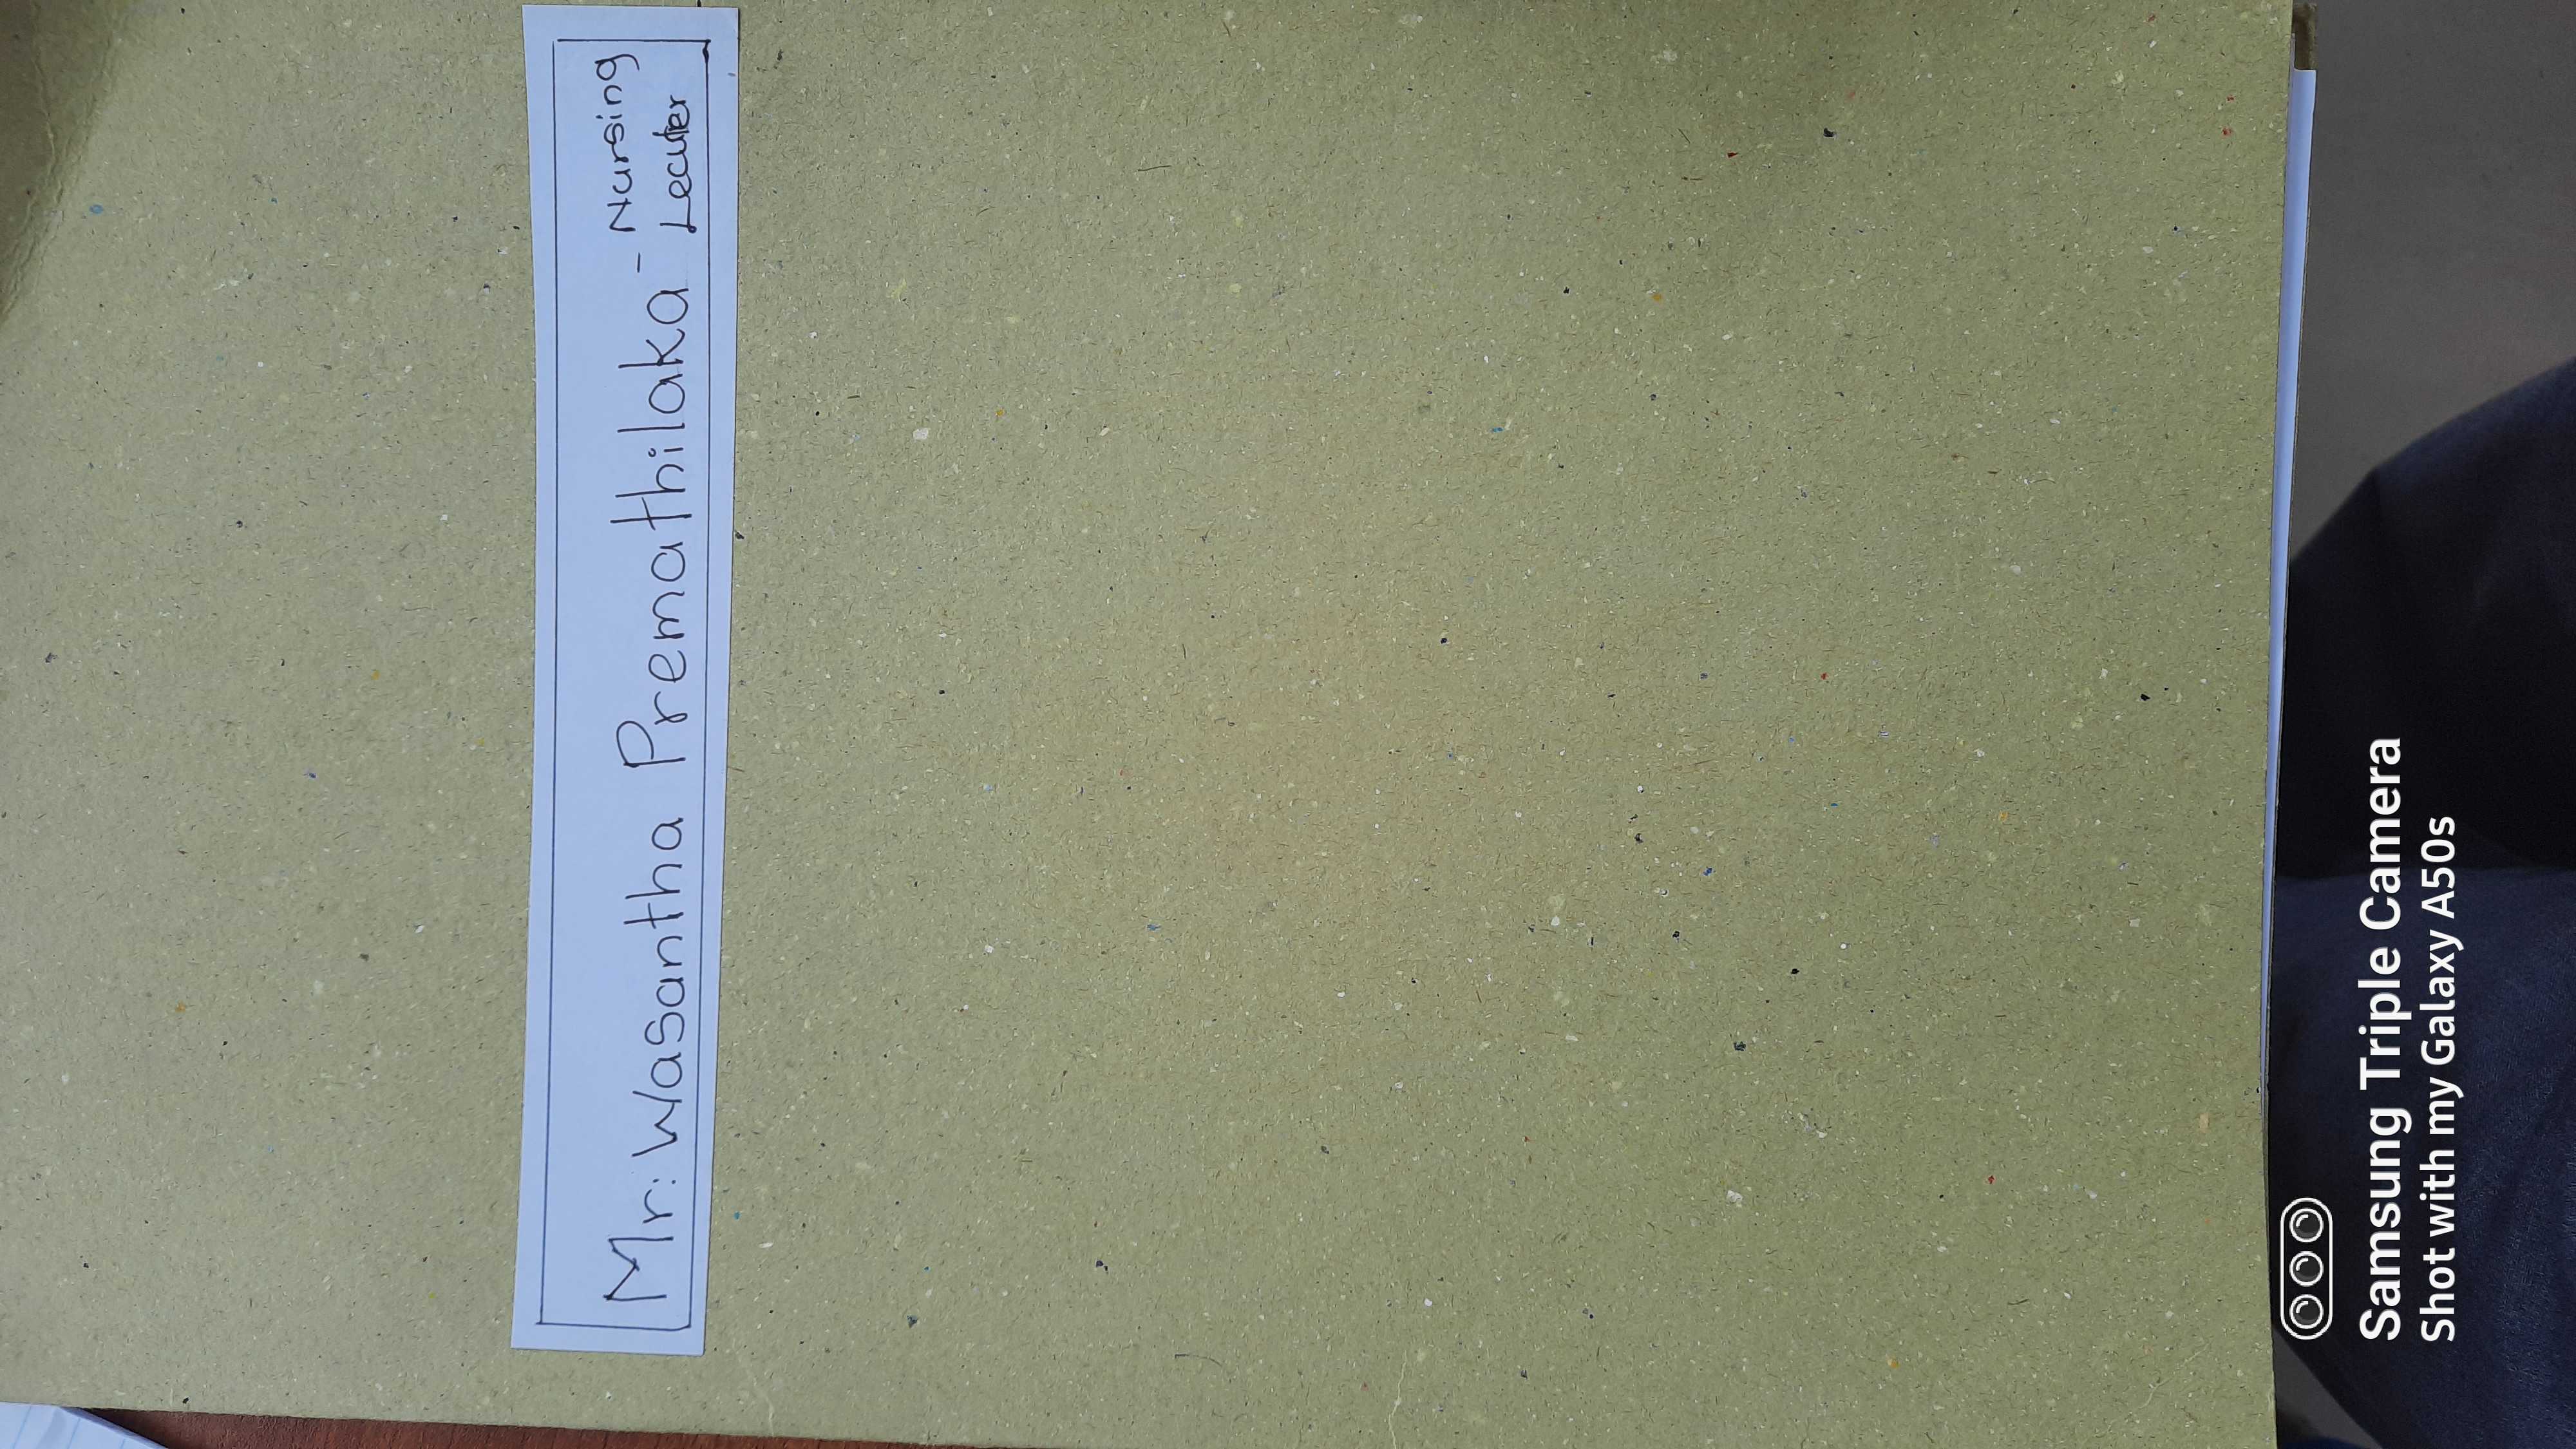 Mr: Wasantha Premathilaka - Nursing
Lecuter
Samsung Triple Camera
Shot with my Galaxy A50s